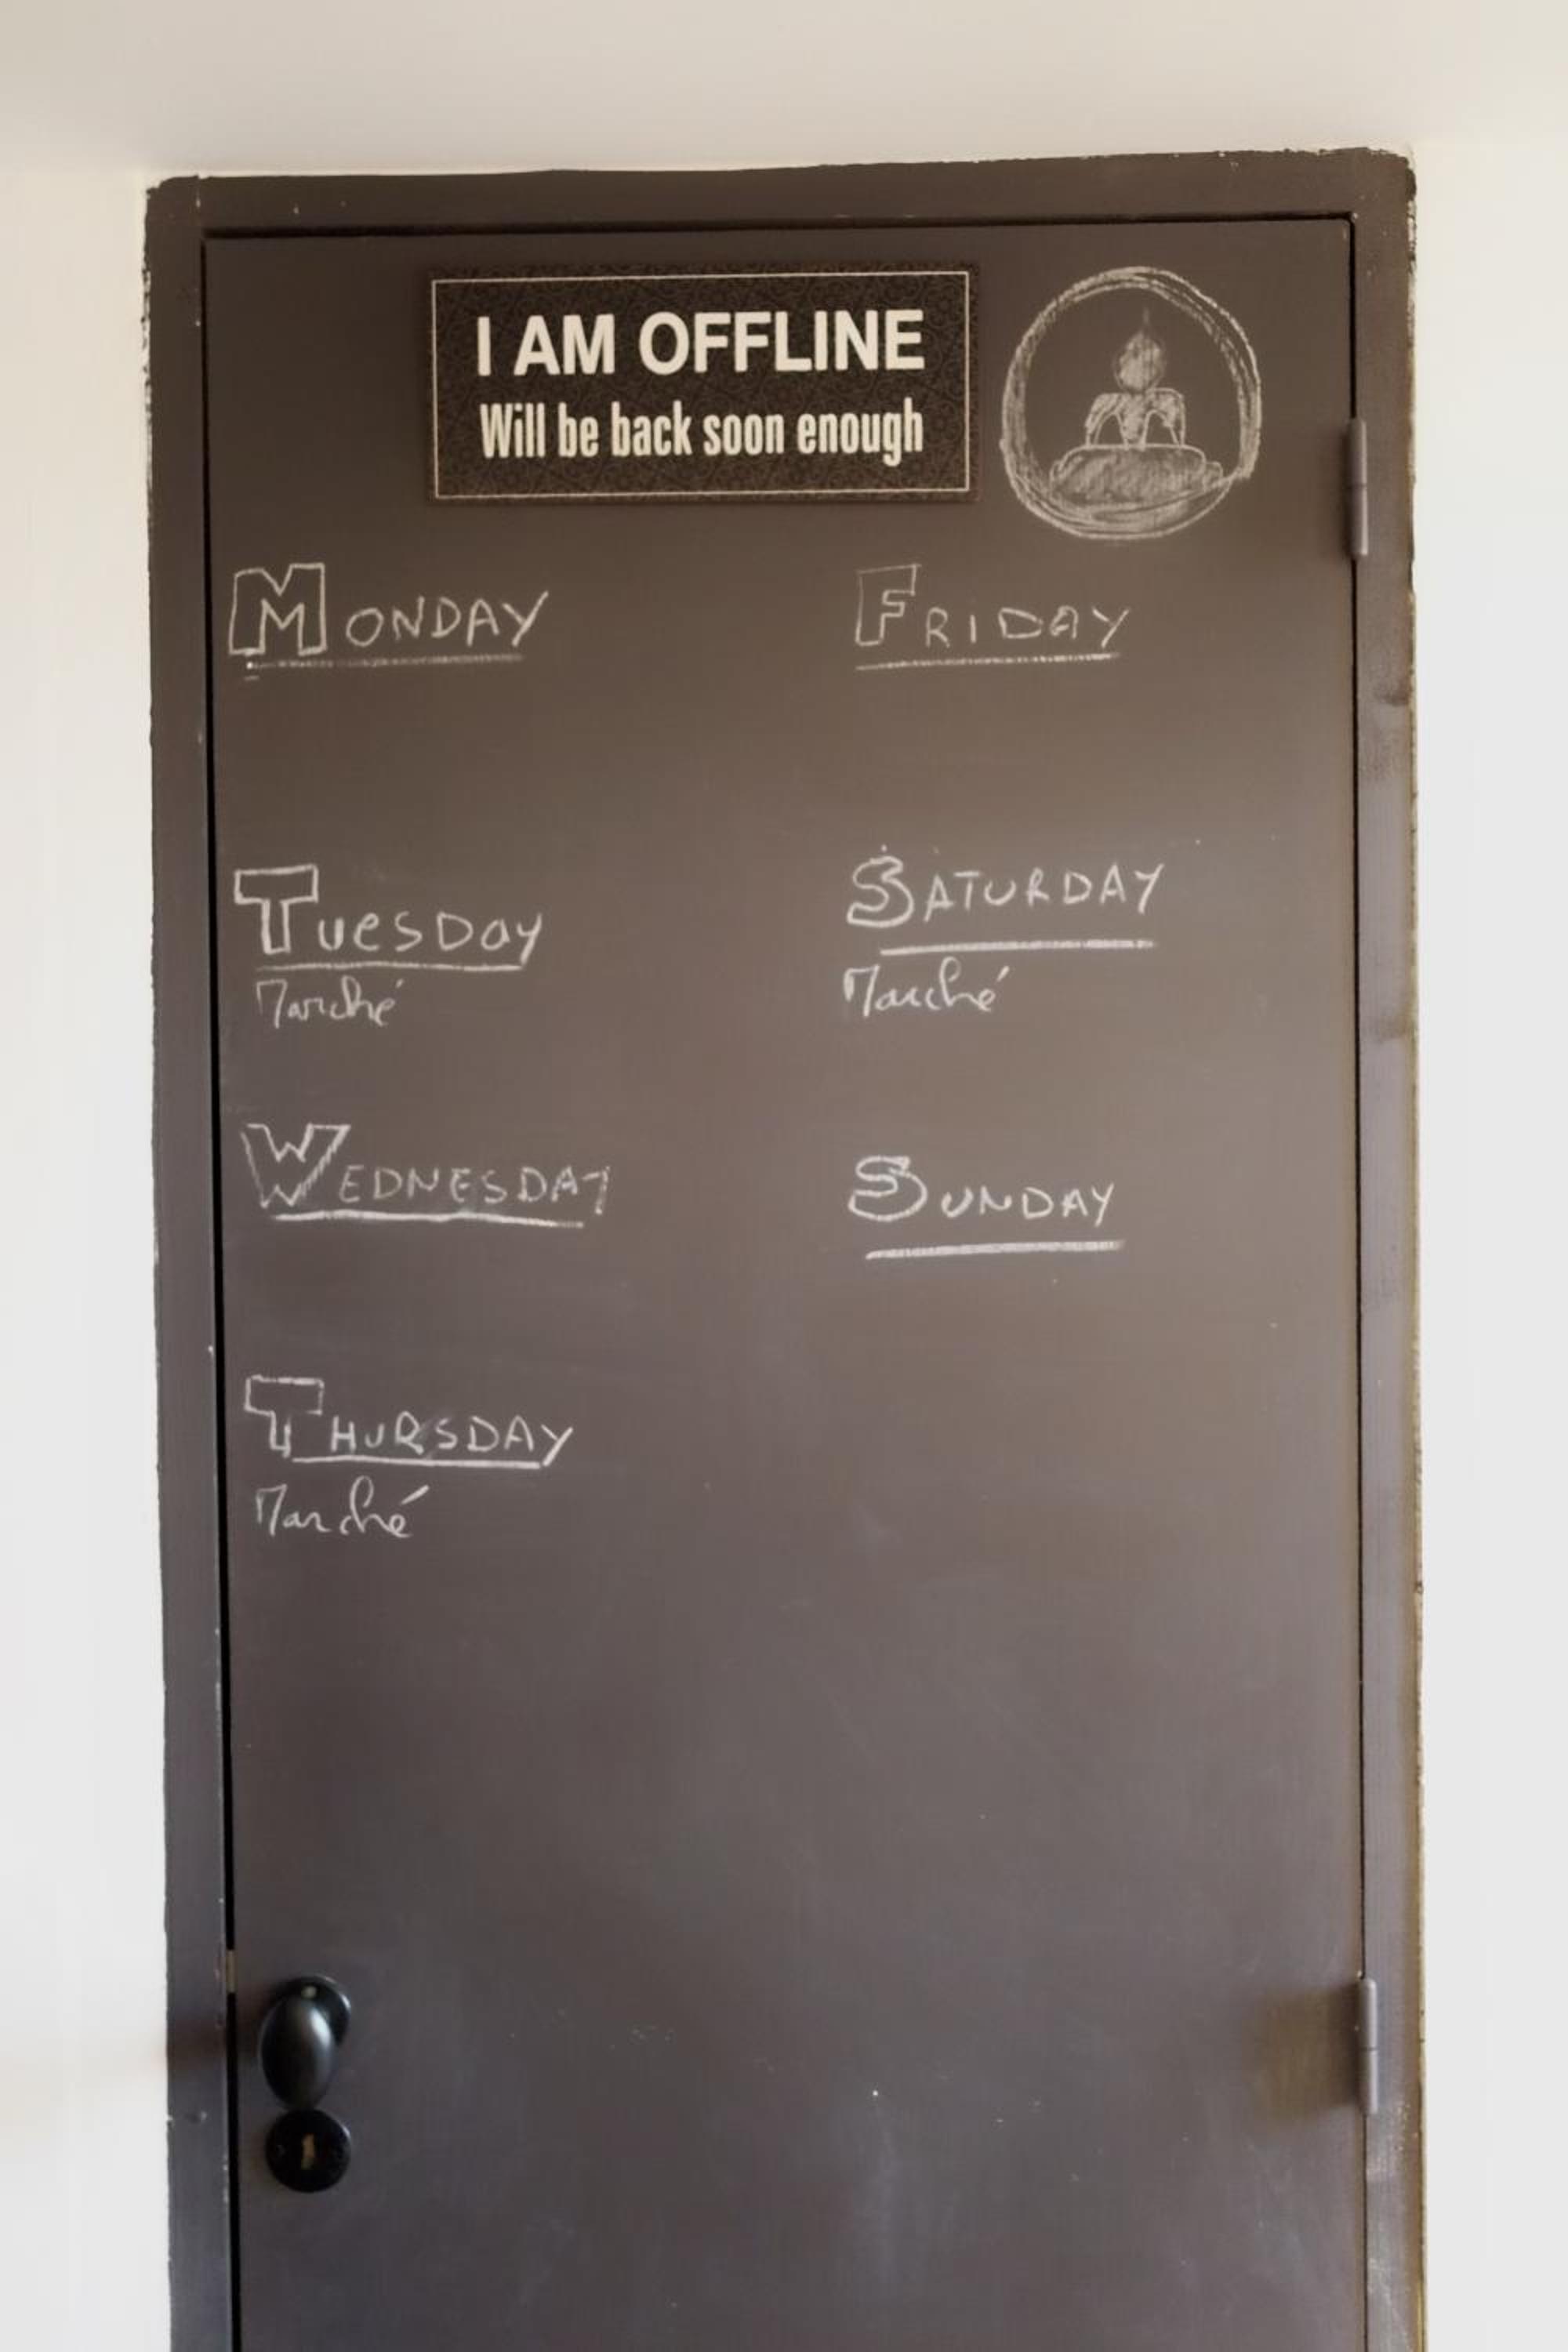 I AM OFFLINE
Will be back soon enough
MONDAY
TuesDay
Marché
WEDNESDAY
THURSDAY
Marché
FRIDAY
SATURDAY
Marché
SUNDAY